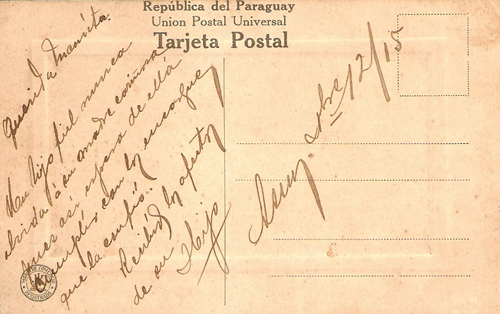 República del Paraguay
Union Postal Universal
Tarjeta Postal
Querida Mamita.
Un hijo fiel nunca
olvida á su madre
pues así espera de ella
cumplió con los encargos
que la confió.
Recibid los afectos
de su Hijo
12/15